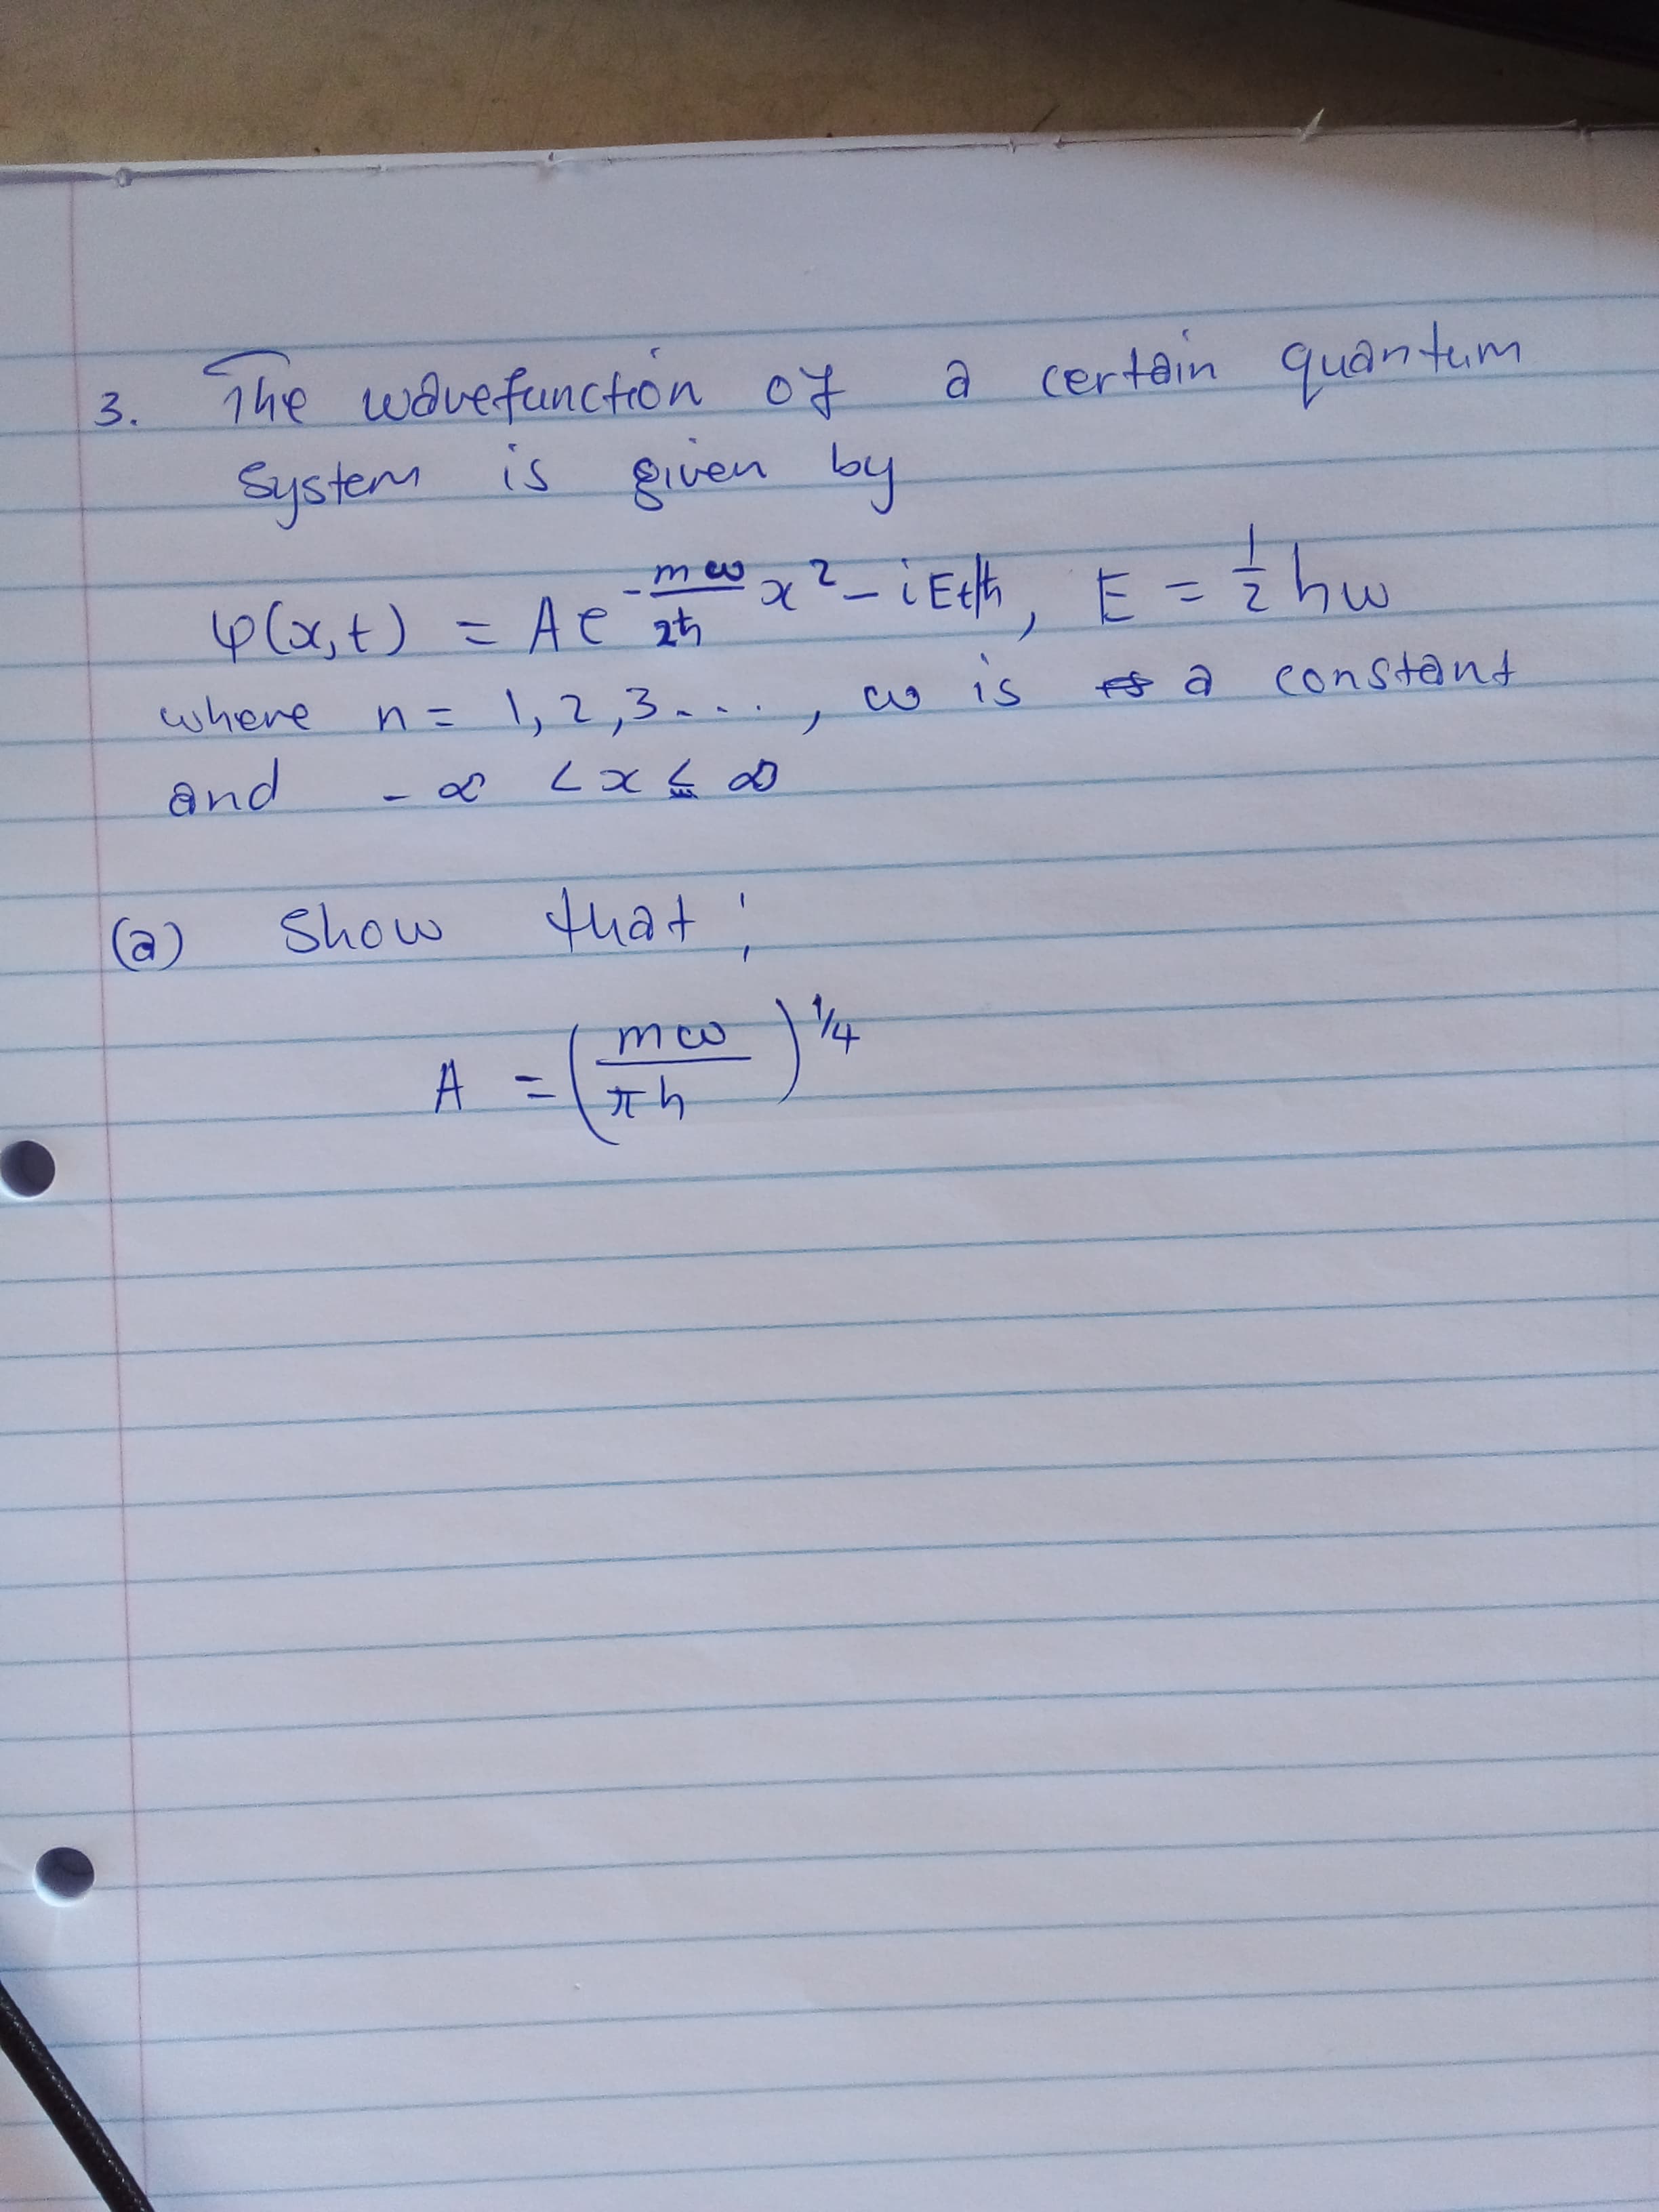 3. The wavefunction of a certain quantum
system is given by
ψ(x,t) = A e^{-\frac{mω}{2ħ} x^2 - iEt/ħ}, E = \frac{1}{2} ħω
where n = 1, 2, 3 . . . , ω is a constant
and -∞ < x ≤ ∞
(a) Show that;
A = (\frac{mω}{πħ})^{1/4}